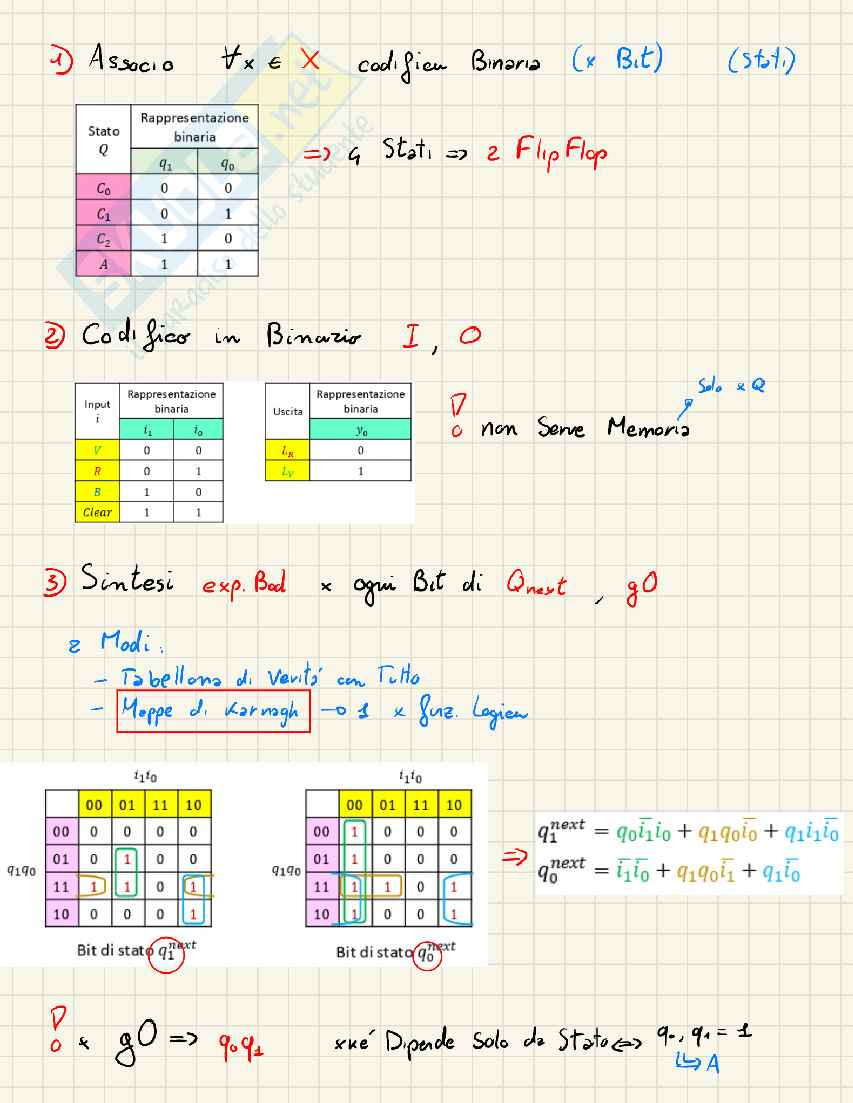 1) Associo ∀x ∈ X codifica Binaria (x Bit) (Stati)
Stato Q | Rappresentazione binaria
q1 | q0
C0 | 0 | 0
C1 | 0 | 1
C2 | 1 | 0
A | 1 | 1
=> 4 Stati => 2 FlipFlop
2) Codifico in Binario I, O
Input i | Rappresentazione binaria
i1 | i0
V | 0 | 0
R | 0 | 1
B | 1 | 0
Clear | 1 | 1
Uscita | Rappresentazione binaria
y0
LR | 0
LV | 1
Solo x Q
! non Serve Memoria
3) Sintesi exp. Bool x ogni Bit di Qnext, gO
2 Modi:
- Tabellona di Veritá con Tutto
- Mappe di Karnagh -o 1 x funz. Logica
i1i0
00 01 11 10
q1q0
00 0 0 0 0
01 0 1 0 0
11 1 1 0 1
10 0 0 0 1
Bit di stato q1^next
i1i0
00 01 11 10
q1q0
00 1 0 0 0
01 1 0 0 0
11 1 1 0 1
10 1 0 0 1
Bit di stato q0^next
=> q1^next = q0i̅1i0 + q1q0i̅0 + q1i1i̅0
q0^next = i̅1i̅0 + q1q0i̅1 + q1i̅0
! x gO => q0q1 xké Dipende Solo da Stato <=> q0, q1 = 1
↳ A